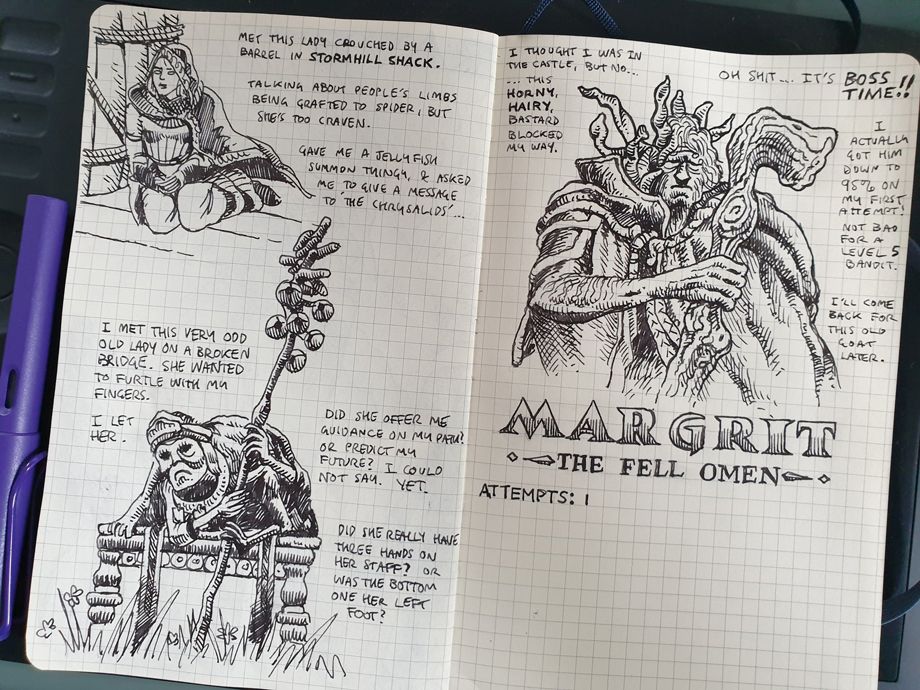 MET THIS LADY CROUCHED BY A
BARREL IN STORMHILL SHACK.
TALKING ABOUT PEOPLE'S LIMBS
BEING GRAFTED TO SPIDER, BUT
SHE'S TOO CRAVEN.
GAVE ME A JELLYFISH
SUMMON THINGY, & ASKED
ME TO GIVE A MESSAGE
TO 'THE CHRYSALIDS'...
I MET THIS VERY ODD
OLD LADY ON A BROKEN
BRIDGE. SHE WANTED
TO FURTLE WITH MY
FINGERS.
I LET
HER.
DID SHE OFFER ME
GUIDANCE ON MY PATH?
OR PREDICT MY
FUTURE? I COULD
NOT SAY. YET.
DID SHE REALLY HAVE
THREE HANDS ON
HER STAFF? OR
WAS THE BOTTOM
ONE HER LEFT
FOOT?
I THOUGHT I WAS IN
THE CASTLE, BUT NO...
... THIS
HORNY,
HAIRY,
BASTARD
BLOCKED
MY WAY.
OH SHIT... IT'S BOSS
TIME!!
I
ACTUALLY
GOT HIM
DOWN TO
95% ON
MY FIRST
ATTEMPT!
NOT BAD
FOR A
LEVEL 5
BANDIT.
I'LL COME
BACK FOR
THIS OLD
GOAT
LATER.
MARGRIT
THE FELL OMEN
ATTEMPTS: 1